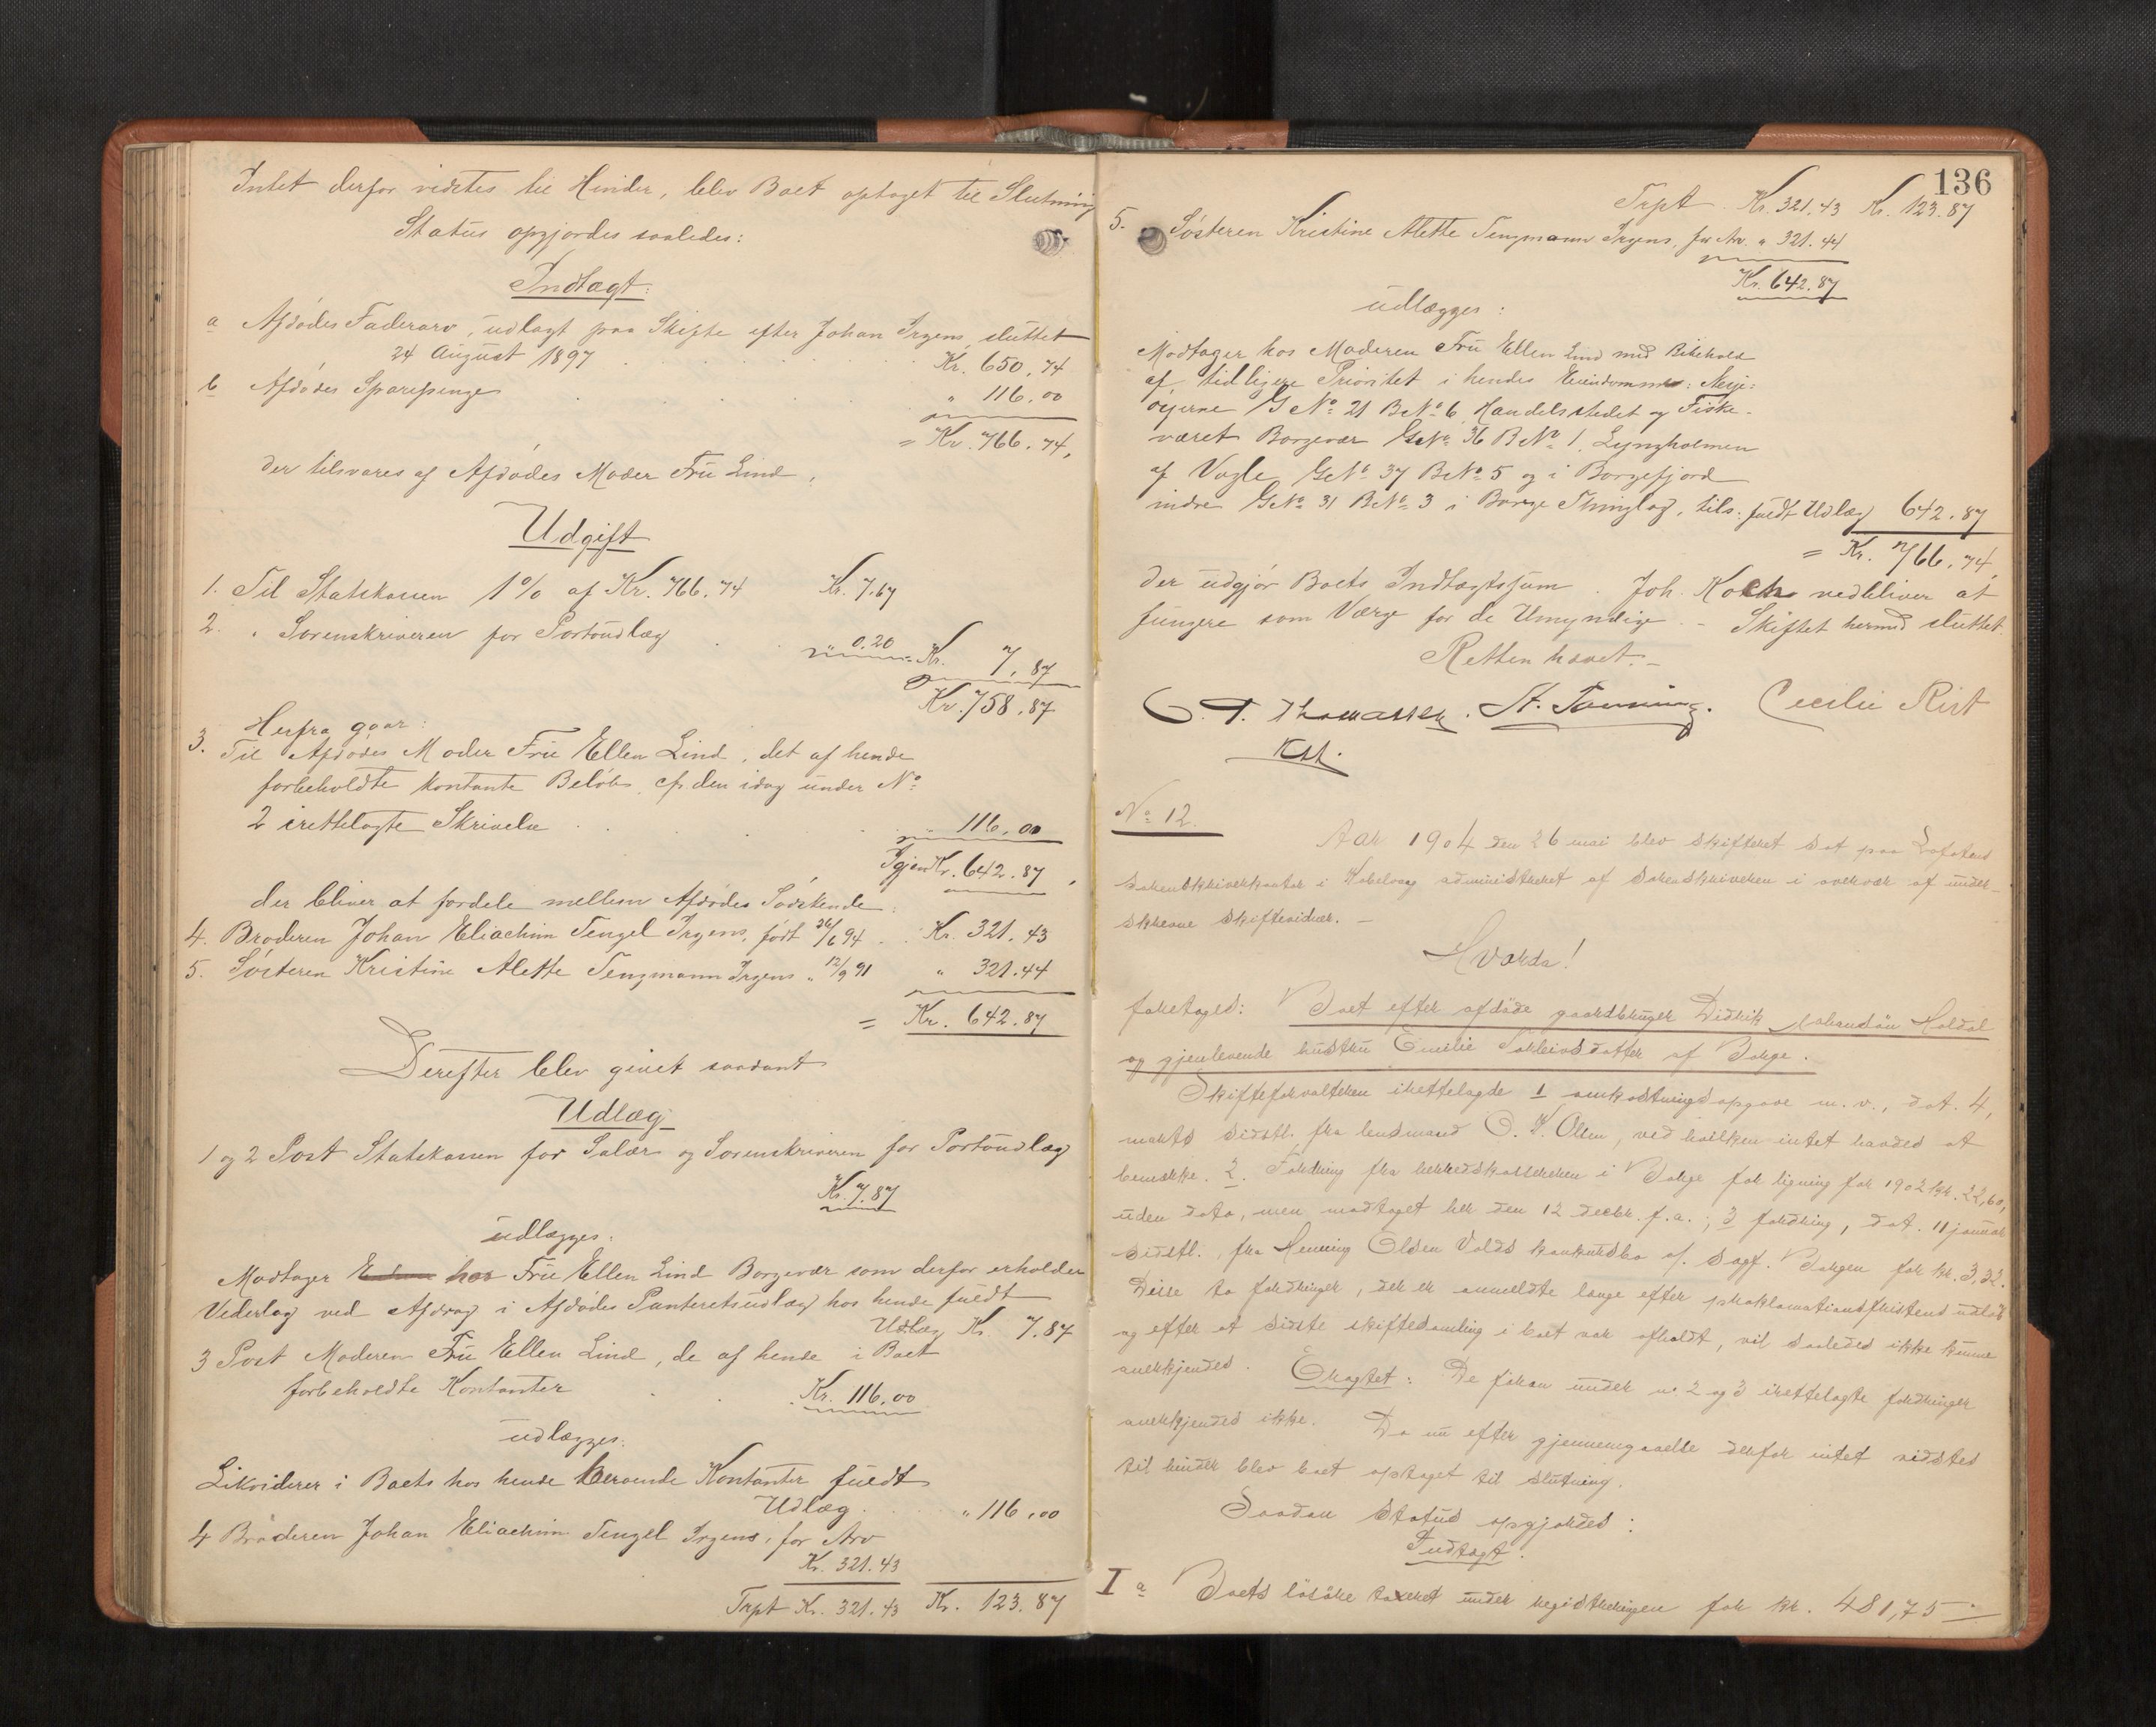 Intet derfor vidstes til Hinder, blev Boet optaget til Slutning
Status opgjordes saaledes:
Indtægt:
a Afdødes Faderarv, udlagt paa Skifte efter Johan Irgens, sluttet
24 August 1897 Kr. 650,74
b Afdødes Sparepenge " 116,00
= Kr. 766,74,
der tilsvares af Afdødes Moder Fru Lind.
Udgift
1. Til Statskassen 1% af Kr. 766.74 Kr. 7.67
2. " Sorenskriveren for Portoudlæg " 0.20
= Kr. 7,87
Kr. 758,87
Herfra gaar:
3. Til Afdødes Moder Fru Ellen Lind, det af hende
forbeholdte kontante Beløb, cfr. den idag under No.
2 irettelagte Skrivelse " 116,00
Igjen Kr. 642.87,
der bliver at fordele mellem Afdødes Sødskende:
4. Broderen Johan Eliachim Tengel Irgens, født 26/6 94 Kr. 321.43
5. Søsteren Kristine Alette Tengmann Irgens " 12/9 91 " 321.44
= Kr. 642.87
Derefter blev givet saadant
Udlæg
1 og 2 Post Statskassen for Salær og Sorenskriveren for Portoudlæg
Kr. 7.87
udlægges:
Modtager hos Fru Ellen Lind Borgevær som derfor erholder
Vederlag ved Afdrag i Afdødes Panteretsudlæg hos hende fuldt
Udlæg Kr. 7.87
3 Post Moderen Fru Ellen Lind, de af hende i Boet
forbeholdte Kontanter Kr. 116,00
udlægges:
Likviderer i Boets hos hende beroende Kontanter fuldt
Udlæg " 116,00
4 Broderen Johan Eliachim Tengel Irgens, for Arv
Kr. 321.43
Trpt Kr. 321.43 Kr. 123.87
136
Trpt. Kr. 321,43 Kr. 123.87
5. " Søsteren Kristine Alette Tengmann Irgens, for Arv " 321.44
Kr. 642.87
udlægges:
Modtager hos Moderen Fru Ellen Lind med Bibehold
af tidligere Prioritet i hendes Eiendomme:
øyerne G No. 21 B No. 6, Handelsstedet og Fiske-
været Borgevær G No. 36 B No. 1, Lyngholmen
af Vagle G No. 37 B No. 5 og i Borgefjord
indre G No. 31 B No. 3 i Borge Thinglag, tils. fuldt Udlæg 642.87
= Kr. 766,74,
der udgjør Boets Indtægtssum. Joh. Koch vedbliver at
fungere som Værge for de Umyndige. – Skiftet hermed sluttet.
Retten hævet. –
Thomassen. Cecilie Rist
Kst.
No. 12.
Aar 1904 den 26 mai blev skifteret sat paa Lofotens
sorenskriverkontor i Kabelvaag administreret af sorenskriveren i overvær af under-
skrevne skiftevidner. –
Hvorda!
foretoges: Boet efter afdøde gaardbruger Didrik Johansøn Holdal
og gjenlevende hustru Emilie Torleivsdatter af Borge.
Skifteforvalteren irettelagde 1 omkostningsopgave m. v., dat. 4,
marts sidstl. fra lensmand O. K. Olsen, ved hvilken intet havdes at
bemerke. 2. Fordring fra herredskassereren i Borge for ligning for 1902 kr. 22,60,
uden dato, men modtaget her den 12 decbr. f.a.; 3 fordring, dat. 11 januar
sidstl., fra Henning Olsen Volds konkursbo af. sagf. Borgen for kr. 3,32.
Disse to fordringer, der er anmeldte længe efter proklamationsfristens udløb
og efter at sidste skiftesamling i boet var afholdt, vil saaledes ikke kunne
anerkjendes. Eragtet: De foran under n. 2 og 3 irettelagte fordringer
anerkjendes ikke. Da nu efter gjennemgaaelse derfor intet vidstes
til hinder blev boet optaget til slutning.
Saadan status opgjordes:
Indtægt.
I a Boets løsøre taxeret under registreringen for kr. 481,75